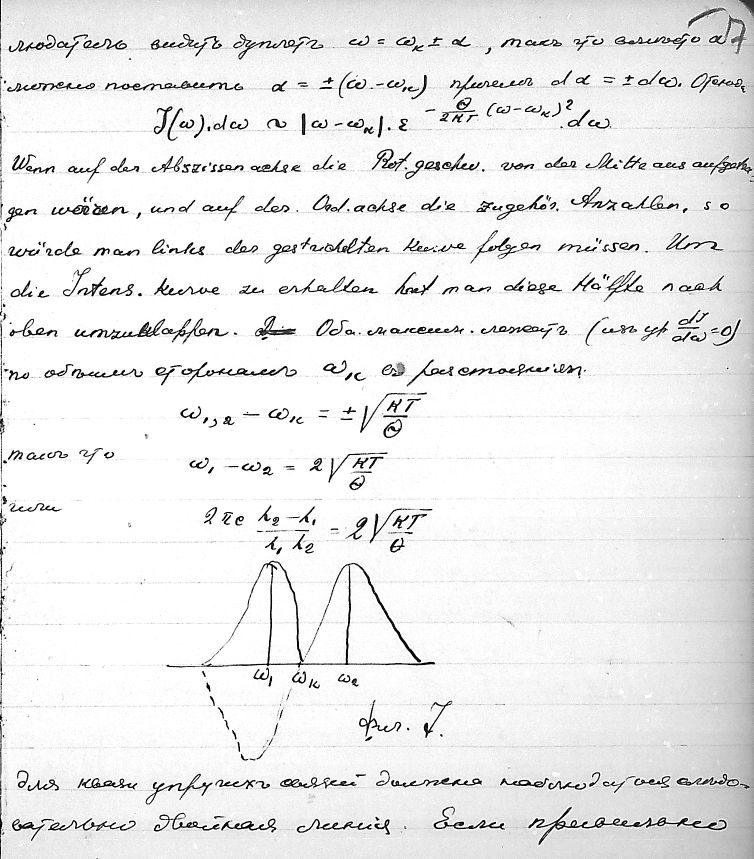 людатель видитъ дуплетъ ω = ω_к ± α, такъ что вмѣсто α
можно поставить α = ±(ω - ω_к) причемъ dα = ±dω. Отсюда
J(ω).dω ~ |ω - ω_к|. ε^{-\frac{Θ}{2KT}(ω-ω_к)^2}. dω
Wenn auf der Abszissenachse die Rot.geschw. von der Mitte aus aufgetra-
gen wären, und auf der Ord.achse die zugehör. Anzahlen, so
würde man links der gestrichelten Kurve folgen müssen. Um
die Intens. Kurve zu erhalten hat man diese Hälfte nach
oben umzuklappen. Оба максим. лежатъ (изъ ур \frac{dJ}{dω}=0)
по обѣимъ сторонамъ ω_к расстояніи
ω_{1,2} - ω_к = ±\sqrt{\frac{KT}{Θ}}
такъ что ω_1 - ω_2 = 2\sqrt{\frac{KT}{Θ}}
или 2πc \frac{λ_2 - λ_1}{λ_1 λ_2} = 2\sqrt{\frac{KT}{Θ}}
ω_1 ω_к ω_2
фиг. I.
для квази упругихъ связей должна наблюдаться слѣдо-
вательно двойная линія. Если правильно